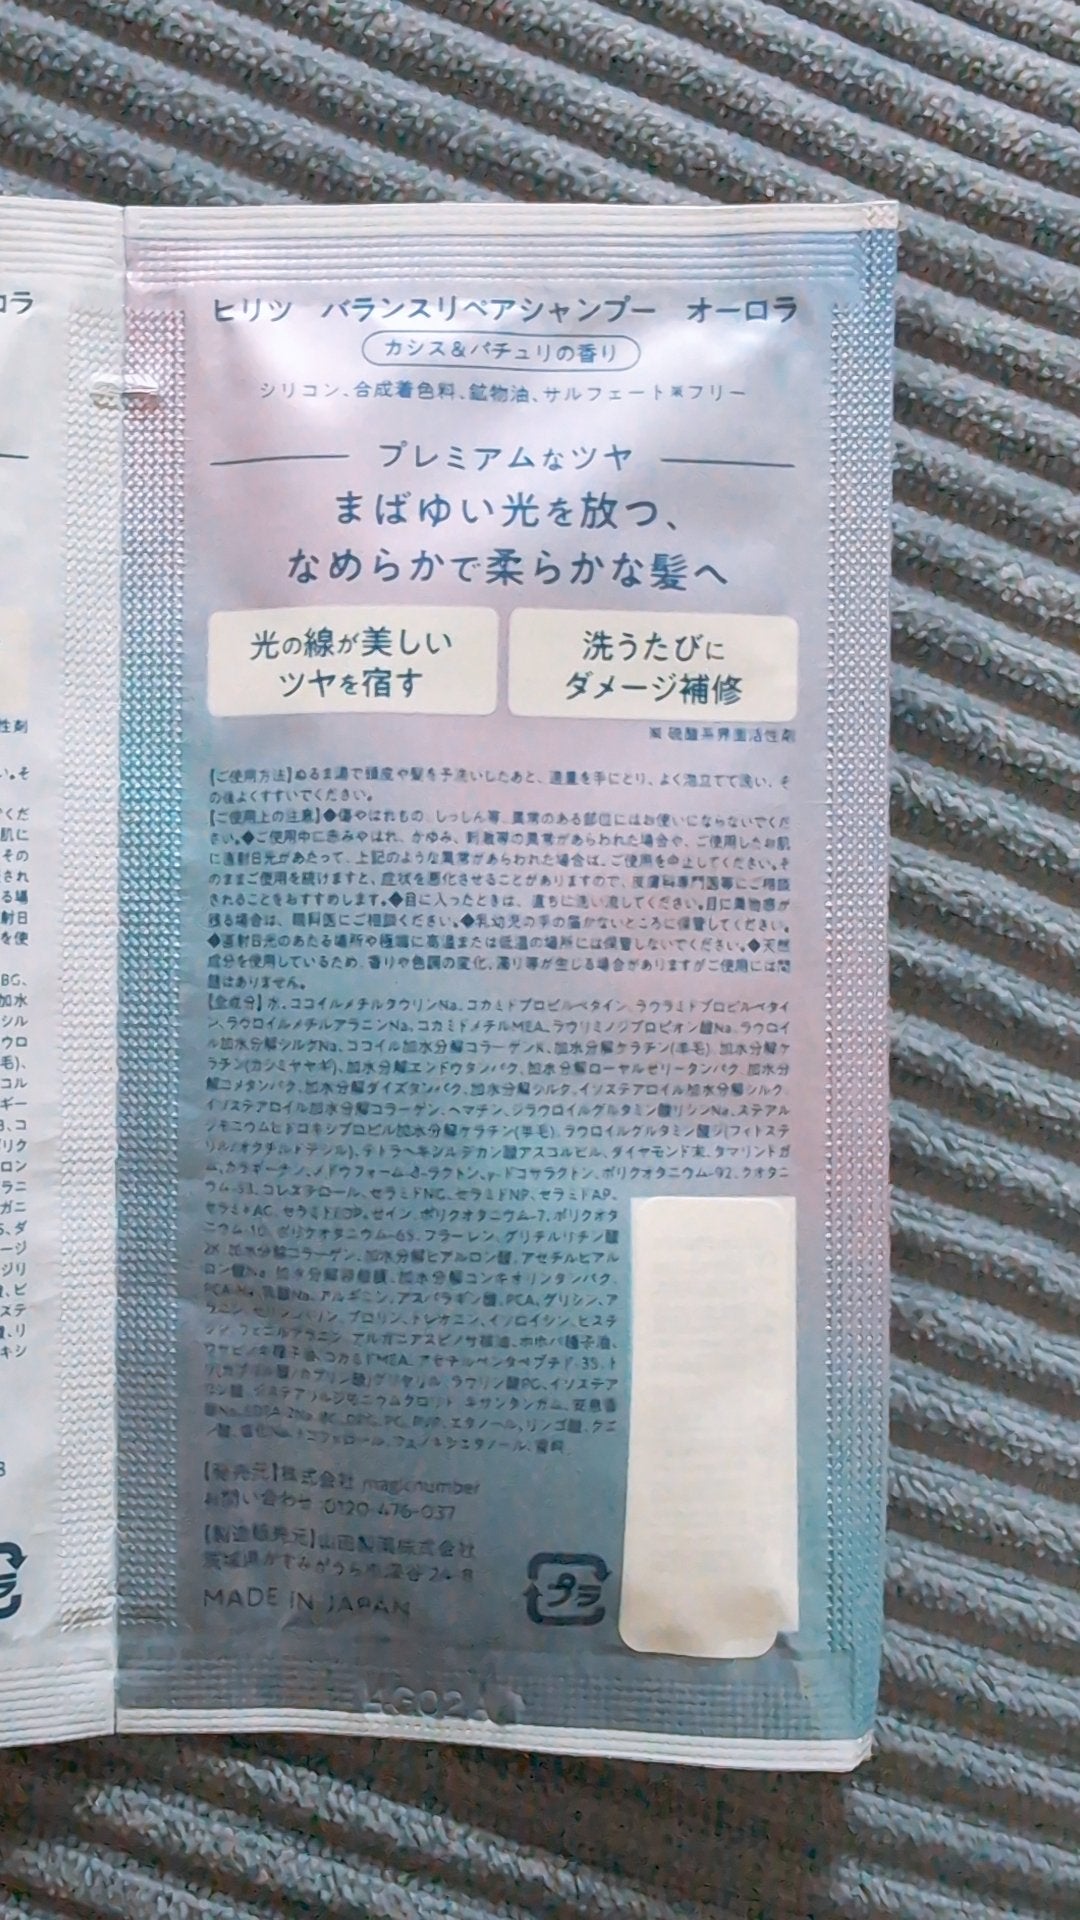 ヒリツ バランスリペアシャンプー オーロラ
カシス&パチュリの香り
シリコン、合成着色料、鉱物油、サルフェート※フリー
プレミアムなツヤ
まばゆい光を放つ、
なめらかで柔らかな髪へ
光の線が美しい
ツヤを宿す
洗うたびに
ダメージ補修
※ 硫酸系界面活性剤
【ご使用方法】ぬるま湯で頭皮や髪を予洗いしたあと、適量を手にとり、よく泡立てて洗い、そ
の後よくすすいでください。
【ご使用上の注意】◆傷やはれもの、しっしん等、異常のある部位にはお使いにならないでくだ
さい。◆ご使用中に赤みやはれ、かゆみ、刺激等の異常があらわれた場合や、ご使用したお肌
に直射日光があたって、上記のような異常があらわれた場合は、ご使用を中止してください。そ
のままご使用を続けますと、症状を悪化させることがありますので、皮膚科専門医等にご相談
されることをおすすめします。◆目に入ったときは、直ちに洗い流してください。目に異物感が
残る場合は、眼科医にご相談ください。◆乳幼児の手の届かないところに保管してください。
◆直射日光のあたる場所や極端に高温または低温の場所には保管しないでください。◆天然
成分を使用しているため、香りや色調の変化、濁り等が生じる場合がありますがご使用には問
題はありません。
【全成分】水、ココイルメチルタウリンNa、コカミドプロピルベタイン、ラウラミドプロピルベタイ
ン、ラウロイルメチルアラニンNa、コカミドメチルMEA、ラウリミノジプロピオン酸Na、ラウロイ
ル加水分解シルクNa、ココイル加水分解コラーゲンK、加水分解ケラチン(羊毛)、加水分解ケ
ラチン(カシミヤヤギ)、加水分解エンドウタンパク、加水分解ローヤルゼリータンパク、加水分
解コメタンパク、加水分解ダイズタンパク、加水分解シルク、イソステアロイル加水分解シルク、
イソステアロイル加水分解コラーゲン、ヘマチン、ジラウロイルグルタミン酸リシンNa、ステアル
ジモニウムヒドロキシプロピル加水分解ケラチン(羊毛)、ラウロイルグルタミン酸ジ(フィトステ
リル/オクチルドデシル)、テトラヘキシルデカン酸アスコルビル、ダイヤモンド末、タマリンドガ
ム、カラギーナン、メドウフォーム-δ-ラクトン、γ-ドコサラクトン、ポリクオタニウム-92、クオタニ
ウム-33、コレステロール、セラミドNG、セラミドNP、セラミドAP、
セラミドAG、セラミドEOP、ゼイン、ポリクオタニウム-7、ポリクオタ
ニウム-10、ポリクオタニウム-65、フラーレン、グリチルリチン酸
2K、加水分解コラーゲン、加水分解ヒアルロン酸、アセチルヒアル
ロン酸Na、加水分解卵殻膜、加水分解コンキオリンタンパク、
PCA-Na、乳酸Na、アルギニン、アスパラギン酸、PCA、グリシン、ア
ラニン、セリン、バリン、プロリン、トレオニン、イソロイシン、ヒスチ
ジン、フェニルアラニン、アルガニアスピノサ核油、ホホバ種子油、
コカミドMEA、アセチルペンタペプチド-35、ト
リ(カプリル酸/カプリン酸)グリセリル、ラウリン酸PG、イソステア
リン酸、ジステアリルジモニウムクロリド、キサンタンガム、安息香
酸Na、EDTA-2Na、BG、DPG、PG、PVP、エタノール、リンゴ酸、クエ
ン酸、塩化Na、トコフェロール、フェノキシエタノール、香料
【発売元】株式会社 magicnumber
お問い合わせ:0120-476-037
【製造販売元】山田製薬株式会社
茨城県かすみがうら市深谷24-8
MADE IN JAPAN
プラ